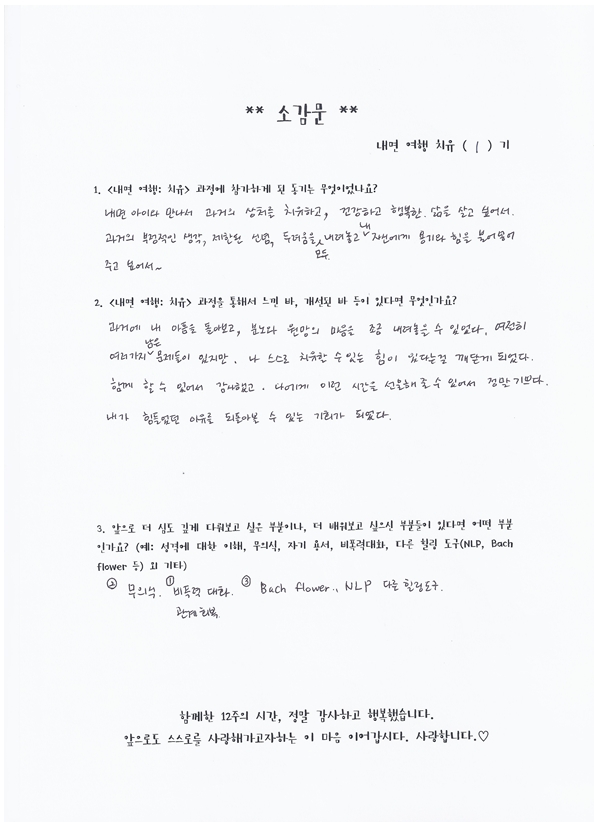 ** 소감문 **
내면 여행 치유 ( 1 ) 기
1. <내면 여행: 치유> 과정에 참가하게 된 동기는 무엇이었나요?
내면 아이와 만나서 과거의 상처를 치유하고, 건강하고 행복한 삶을 살고 싶어서.
과거의 부정적인 생각, 제한된 신념, 두려움을 모두 내려놓고 내 자신에게 용기와 힘을 불어넣어
주고 싶어서~
2. <내면 여행: 치유> 과정을 통해서 느낀 바, 개선된 바 등이 있다면 무엇인가요?
과거에 내 아픔을 돌아보고, 분노와 원망의 마음을 조금 내려놓을 수 있었다. 여전히
여러가지 남은 문제들이 있지만. 나 스스로 치유할 수 있는 힘이 있다는걸 깨닫게 되었다.
함께 할 수 있어서 감사했고. 나에게 이런 시간을 선물해 줄 수 있어서 정말 기쁘다.
내가 힘들었던 이유를 되돌아볼 수 있는 기회가 되었다.
3. 앞으로 더 심도 깊게 다뤄보고 싶은 부분이나, 더 배워보고 싶으신 부분들이 있다면 어떤 부분
인가요? (예: 성격에 대한 이해, 무의식, 자기 용서, 비폭력대화, 다른 힐링 도구(NLP, Bach
flower 등) 외 기타)
② 무의식. ① 비폭력 대화. ③ Bach flower., NLP 다른 힐링도구.
관계회복.
함께한 12주의 시간, 정말 감사하고 행복했습니다.
앞으로도 스스로를 사랑해가고자하는 이 마음 이어갑시다. 사랑합니다.♡